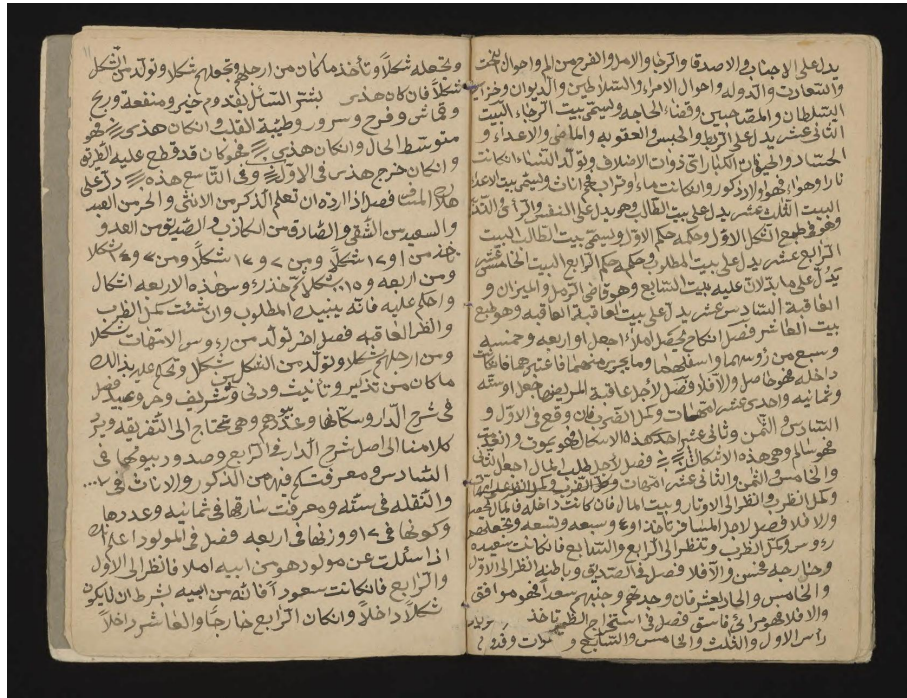 يدل على الاجناب والاصدقا والرجا والامل والفرح من الم واحوال البخت
والسعادت والدوله واحوال الامراء والسلاطين والديوان وخزاين
السلطان والمصاحبين وقضاء الحاجه ويسمى بيت الرجاء البيت
الثانى عشر يدل على الربط والحبس والعقوبه والماضى والاعداء و
الحساد والحيوان الكبار اى ذوات الاضلاف وتولد النساء انكانت
نارا وهواء فهو اولاد ذكور وانكانت ماء وتراب فهى اناث ويسمى بيت الاعداء
البيت الثلث عشر يدل على بيت الطالب وهو يدل على النفس والرأى
وهو فى طبع الشكل الاول وحكمه حكم الاول ويسمى بيت الطالب البيت
الرابع عشر يدل على بيت المطلوب وحكمه حكم الرابع البيت الخامس عشر
يدل على ما يدلان عليه بيت السابع وهو قاضى الرمل والميزان و
العاقبة السادس عشر يدل على بيت العاقبة العاقبه وهو طبع
بيت العاشر فصل انكاح يحصل املاء اجعل اواربعه وخمسه
وسبع من رؤسهما واسفلهما وما يخرج منهما فاعتبرهما فانكانت
داخله فهو حاصل والافلا فصل لاجل عاقبة المريض جعل اوسته
وثمانيه واحدى عشر امهات وكمل الضرب فان وقع فى الاول و
السادس والثمن وثانى عشر احد هذه الاسكال فهو يموت والا
فهو سالم وهى هذه الاشكال فصل لاجل طلب المال اجعل الثانى
والخامس والثمن والثانى عشر امهات وكمل الضرب
وكمل الضرب وانظر الى الاوتار وبيت المال فان كانت داخله فالمال
والافلا فصل لاجل المسافر تأخذ او٤ وسبعه وتسعه وتجعلهم
رءوس وكمل الضرب وتنظر الى الرابع والسابع فانكانت سعيده
وخارجه فحسن والافلا فصل فى الصديق وباطنه انظر الى الاول
والخامس والحاديعشر فان وجدتهم وجنبهم سعيد فهو موافق
والافلا فهو مرائى فاسق فصل فى استخراج الضمير تاخذ
رأس الاول والثلث والخامس والسابع و
وتجعله شكلا وتأخذ ما كان من ارجلهم وتجعلهم شكلا وتولد من الشكل
شكلا فان كان هذى بشر السائل بقدوم خير ومنفعة وربح
وقماش وفرح وسرور وطيبة القلب وانكان هذى فهو
متوسط الحال وانكان هذى فهو كان قد قطع عليه الطريق
وانكان خرج هذى فى الاول وفى التاسع هذه دل على
هلاك المسافر فصل اذا اردة ان تعلم الذكر من الانثى والحر من العبد
والسعيد من الشقى والصادق من الكاذب والصديق من العدو
فخذ من ١ و١٢ شكلا ومن ٢ و١٣ شكلا ومن ٣ و١٤ شكلا
ومن اربعه و١٥ شكلا ثم خذ رءوس هذه الاربعه اشكال
واحكم عليه فانه ينبيك المطلوب وان شئت كمل الضرب
وانظر العاقبه فصل اخر تولد من رءوس الامهات شكلا
ومن ارجلهم شكلا وتولد من الشكلين شكل وتحكم عليه بذالك
ما كان من تذكير وتانيث ودنى وشريف وحر وعبيد فصل
فى شرح الدار وسكانها وغيره وهى تحتاج الى التفريقه ويرد
كلامنا الى اصل شرح الدار فى الرابع وصدور بيوتها فى
السادس ومعرفت كم فيهم من الذكور والاناث فى
والنقله فى سته ومعرفت سارقها فى ثمانيه وعددها
وكونها فى ١٢ ووزنها فى اربعه فصل فى المولود اعلم انك
اذا سئلت عن مولود هو من ابيه املا فانظر الى الاول
والرابع فانكانت سعود آفانه من ابيه بشرط ان لايكون
شكلا داخلا وانكان الرابع خارجا والعاشر داخلا